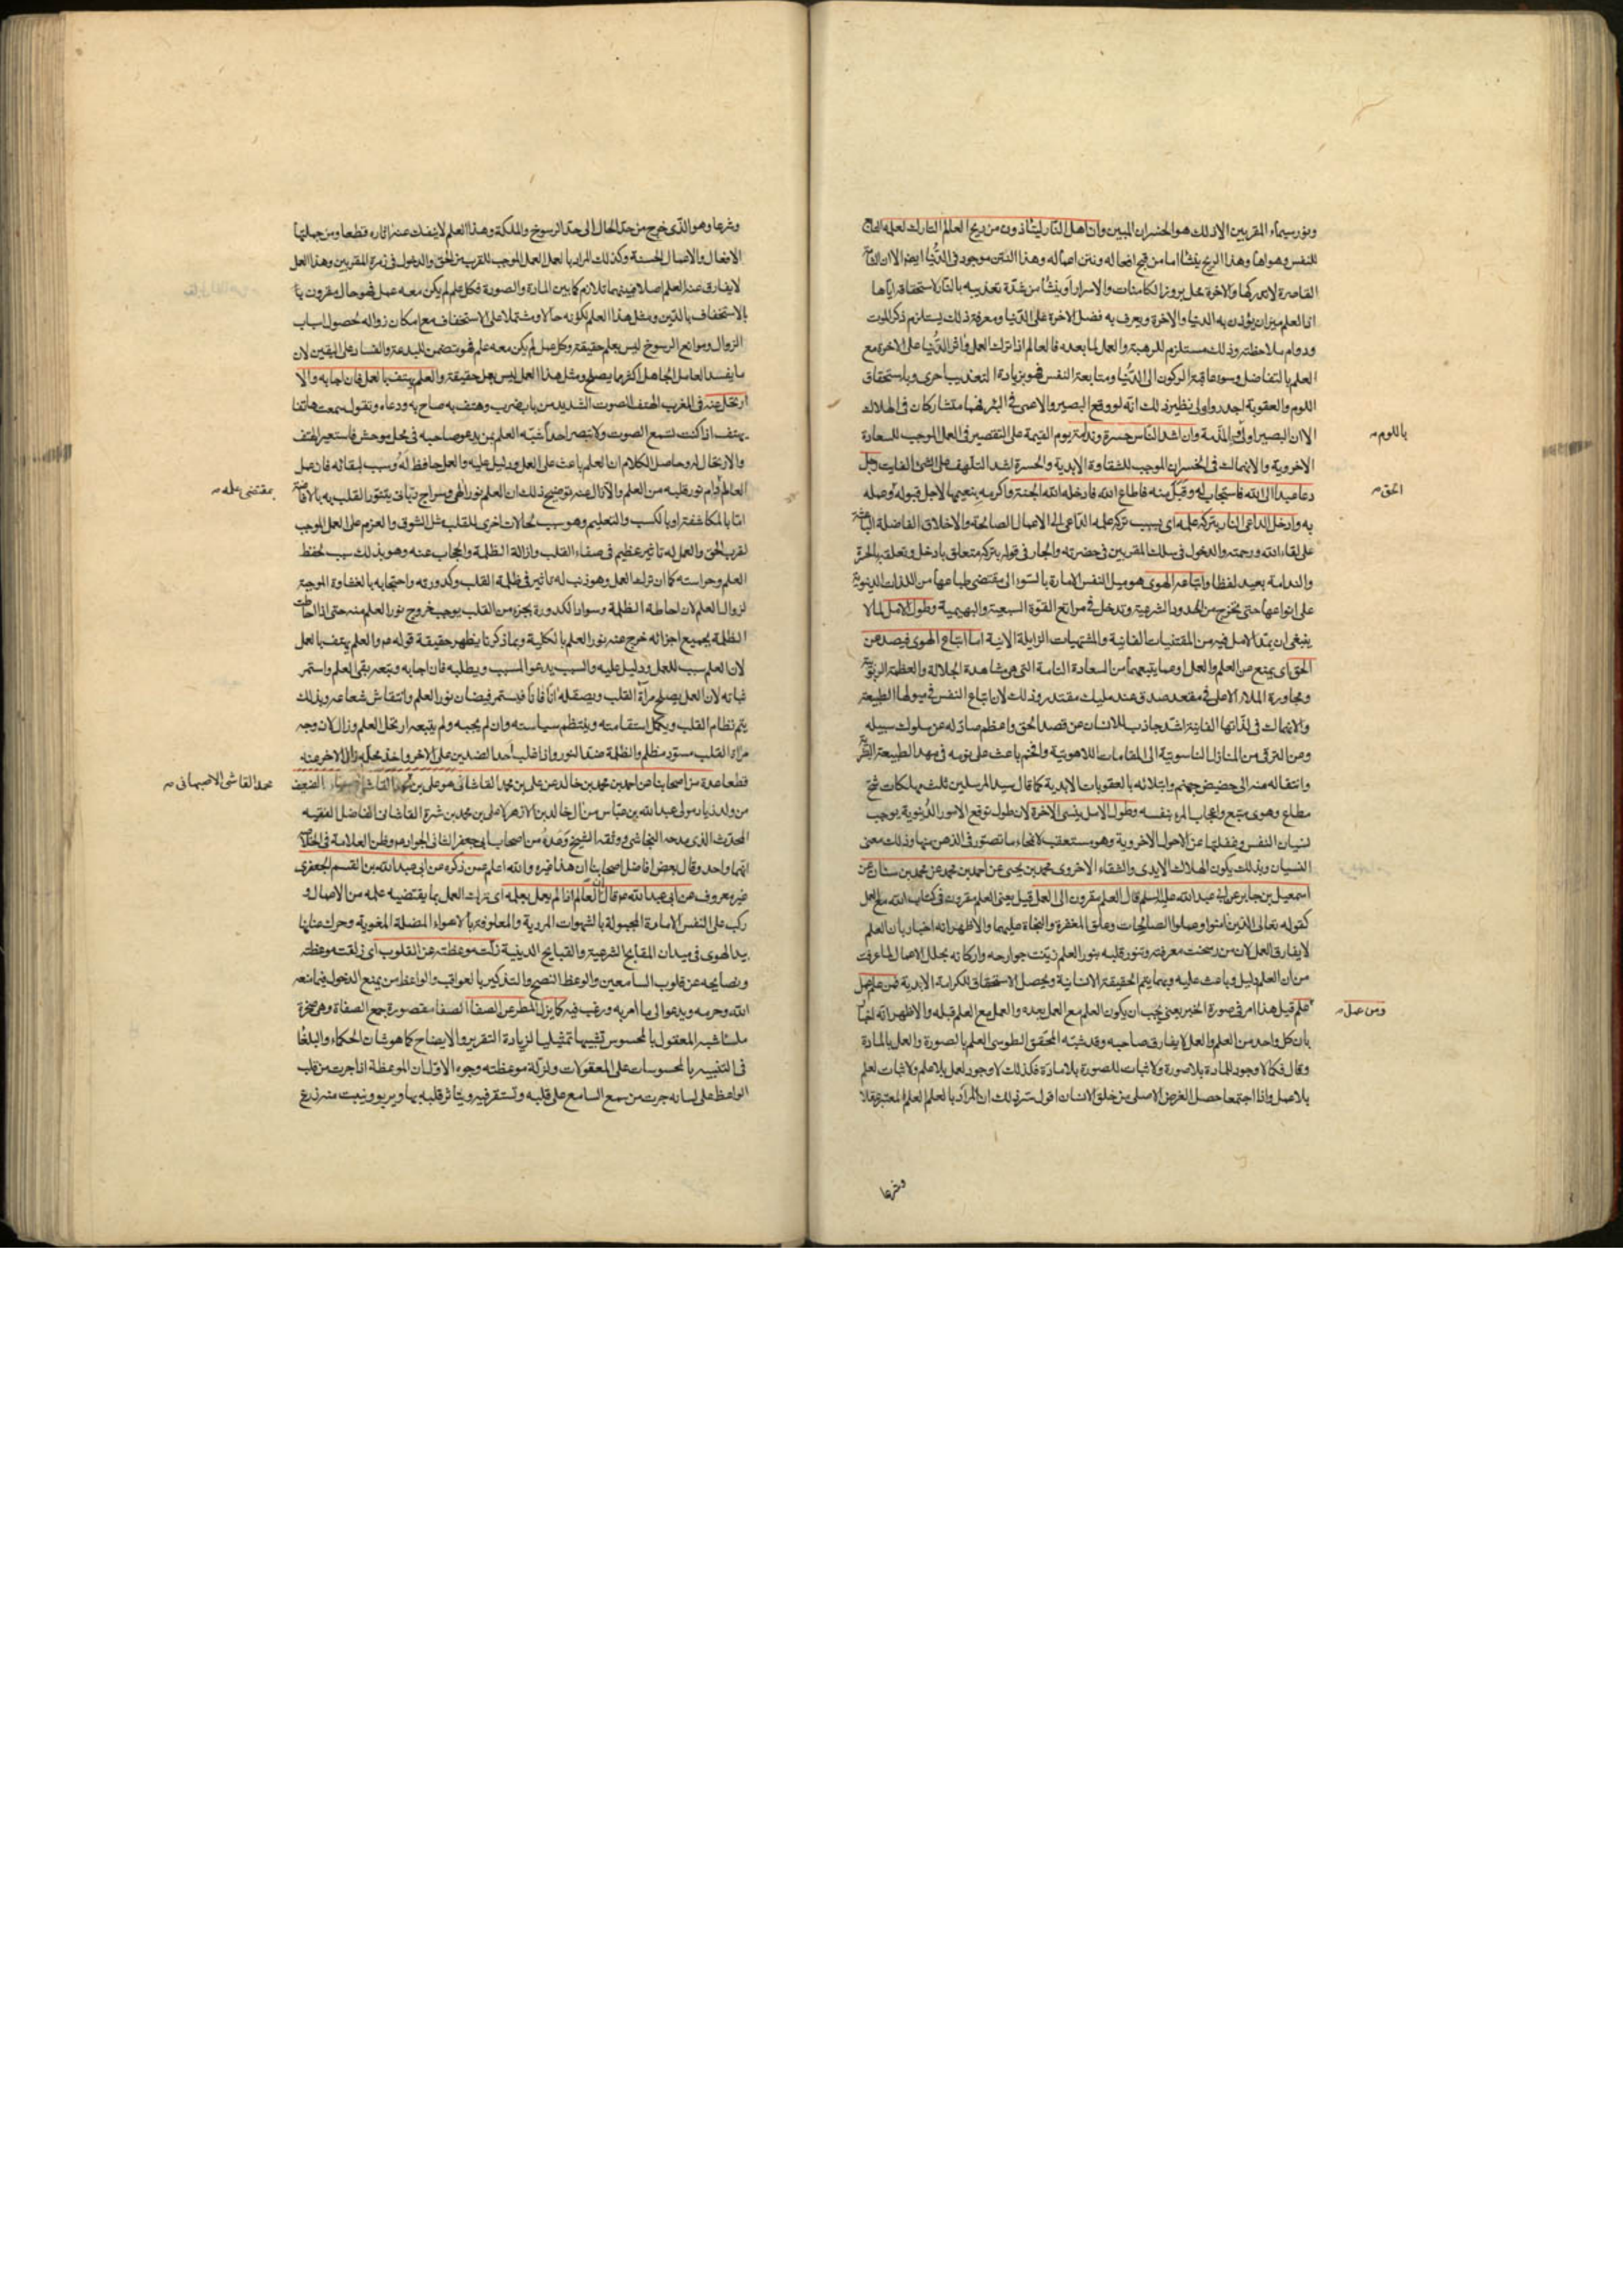 ونور سيماء المقربين الا ذلك هو الخسران المبين وان اهل النار ليتأذون من ريح العالم التارك لعلمه
للنفس وهواها وهذا الريح ينشأ اما من قبح افعاله ونتن اعماله وهذا النتن موجود في الدنيا ايضا الا ان
القاصرة لا تدركها والاخرة محل بروز الكامنات والاسرار او ينشأ من شدة تعذيبه بالنار لاستحقاقه اياها
اذ العلم ميزان يوزن به الدنيا والاخرة ويعرف به فضل الاخرة على الدنيا ومعرفة ذلك يستلزم ذكر الموت
ودوام ملاحظته وذلك مستلزم للرهبة والعمل لما بعده فالعالم اذا ترك العمل واثر الدنيا على الاخرة مع
العلم بالتفاضل وسوء عاقبة الركون الى الدنيا ومتابعة النفس فهو بزيادة التعذيب احرى وباستحقاق
اللوم والعقوبة اجدر واولى نظير ذلك انه لو وقع البصير والاعمى في البئر فهما متشاركان في الهلاك
الا ان البصير اولى بالمذمة وان اشد الناس حسرة وندامة يوم القيمة على التقصير في العمل الموجب للسعادة
باللوم
الاخروية والانهماك في الخسران الموجب للشقاوة الابدية والحسرة اشد التلهف على الشئ الفايت رجل
دعا عبدا الى الله فاستجاب له وقبل منه فاطاع الله فادخله الله الجنة واكرمه بنعيمها لاجل قبوله وصله
الحق
به وادخل الداعي النار بتركه علمه اي بسبب تركه علمه الداعي الى الاعمال الصالحة والاخلاق الفاضلة
على لقاء الله ورحمته والدخول في سلك المقربين في حضرته والجار في قوله بتركه متعلق بادخل وتعلقه بالحسرة
والندامة بعيد لفظا واتباعه الهوى هو ميل النفس الامارة بالسوء الى مقتضى طباعها من اللذات الدنيوية
على انواعها حتى يخرج من الحدود الشرعية وتدخل في مراتع القوة السبعية والبهيمية وطول الامل لما لا
ينبغي ان يمد الامل فيه من المقتنيات الفانية والمشتهيات الزايلة الانية اما اتباع الهوى فيصد عن
الحق اي يمنع من العلم والعمل وعما يتبعهما من السعادة التامة التي هي مشاهدة الجلالة والعظمة الربوبية
ومجاورة الملاء الاعلى في مقعد صدق عند مليك مقتدر وذلك لان اتباع النفس في ميولها الطبيعية
والانهماك في لذاتها الفانية اشد جاذب للانسان عن قصد الحق واعظم صاد له عن سلوك سبيله
وعن الترقي من المنازل الناسوتية الى المقامات اللاهوتية باعث على نومه في مهد الطبيعة
وانتقاله منه الى حضيض جهنم وابتلائه بالعقوبات الابدية كما قال سيد المرسلين ثلث مهلكات شح
مطاع وهوى متبع واعجاب المرء بنفسه وطول الامل ينسي الاخرة لان طول توقع الامور الدنيوية يوجب
نسيان النفس وغفلتها عن الاحوال الاخروية وهو مستعقب لانمحاء ما تصور في الذهن منها وذلك معنى
النسيان وبذلك يكون الهلاك الابدي والشقاء الاخروي محمد بن يحيى عن احمد بن محمد عن محمد بن سنان عن
اسمعيل بن جابر عن ابي عبد الله عليه السلام قال العلم مقرون الى العمل قيل يعني العلم مقرون في كتاب الله مع العمل
كقوله تعالى الذين امنوا وعملوا الصالحات وعلق المغفرة والنجاة عليهما والاظهر انه اخبار بان العلم
لا يفارق العمل لان من رسخت معرفته وتنور قلبه بنور العلم زينت جوارحه واركانه بحلل الاعمال لما عرفت
من ان العلم دليل وباعث عليه وبهما يتم الحقيقة الانسانية ويحصل الاستحقاق للكرامة الابدية فمن علم عمل
ومن عمل
علم قيل هذا امر في صورة الخبر يعني يجب ان يكون العلم مع العمل بعده والعمل مع العلم قبله والاظهر انه
بان كل واحد من العلم والعمل لا يفارق صاحبه وقد شبه المحقق الطوسي العلم بالصورة والعمل بالمادة
وقال فكما لا وجود للمادة بلا صورة ولا ثبات للصورة بلا مادة فكذلك لا وجود لعمل بلا علم ولا ثبات لعلم
بلا عمل واذا اجتمعا حصل الغرض الاصلي من خلق الانسان اقول سر ذلك ان المراد بالعلم العلم المعتبر عقلا
وشرعا
وشرعا وهو الذي خرج من حد الحال الى حد الرسوخ والملكة وهذا العلم لا ينفك عنه اثاره قطعا ومن جملتها
الافعال والاعمال الحسنة وكذلك المراد بالعمل العمل الموجب للقرب من الحق والدخول في زمرة المقربين وهذا العمل
لا يفارق عنه العلم اصلا فبينهما تلازم كما بين المادة والصورة فكل علم لم يكن معه عمل فهو حال مقرون
بالاستخفاف بالدين ومثل هذا العلم لكونه حالا ومشتملا على الاستخفاف مع امكان زواله لحصول اسباب
الزوال وموانع الرسوخ ليس بعلم حقيقة وكل عمل لم يكن معه علم فهو متضمن للبدعة والفساد على اليقين لان
ما يفسد العامل الجاهل اكثر مما يصلح ومثل هذا العمل ليس بعمل حقيقة والعلم يهتف بالعمل فان اجابه والا
ارتحل عنه في المغرب الهتف الصوت الشديد من باب ضرب وهتف به صاح به ودعاه وتقول سمعت هاتفا
يهتف اذا كنت تسمع الصوت ولا تبصر احدا شبه العلم بمن يدعو صاحبه في محل موحش فاستعير الهتف
والارتحال له وحاصل الكلام ان العلم باعث على العمل ودليل عليه والعمل حافظ له وسبب لبقائه فان عمل
العالم دام نور قلبه من العلم والا زال عنه توضيح ذلك ان العلم نور الهي وسراج رباني يتنور القلب به بالافاضة
بمقتضى علمه
اما بالمكاشفة او بالكسب والتعليم وهو سبب لحالات اخرى للقلب مثل الشوق والعزم على العمل الموجب
لقرب الحق والعمل له تاثير عظيم في صفاء القلب وازالة الظلمة والحجاب عنه وهو بذلك سبب لحفظ
العلم وحراسته كما ان ترك العمل وهو ذنب له تاثير في ظلمة القلب وكدورته واحتجابه بالغشاوة الموجبة
لزوال العلم لان احاطة الظلمة وسواد الكدورة بجزء من القلب يوجب خروج نور العلم منه حتى اذا احاطت
الظلمة بجميع اجزائه خرج عنه نور العلم بالكلية وبما ذكرنا يظهر حقيقة قوله ع والعلم يهتف بالعمل
لان العلم سبب للعمل ودليل عليه والسبب يدعو المسبب ويطلبه فان اجابه وتبعه بقي العلم واستمر
ثباته لان العمل يصلح مرآة القلب ويصقله انا فانا فيستمر فيضان نور العلم وانتقاش شعاعه وبذلك
يتم نظام القلب ويكمل استقامته وينتظم سياسته وان لم يجبه ولم يتبعه ارتحل العلم وزال لان وجه
مراة القلب مستور مظلم والظلمة ضد النور واذا غلب احد الضدين على الاخر واخذ محله زال الاخر عنه
قطعا عدة من اصحابنا عن احمد بن محمد بن خالد عن علي بن محمد القاشاني هو علي بن محمد القاشاني الضعيف
محمد القاشي الاصبهاني
من ولد زياد مولى عبد الله بن عباس من ال خالد بن الازهر لا علي بن محمد بن شيرة القاشاني الفاضل الفقيه
المحدث الذي مدحه النجاشي ووثقه الشيخ وعده من اصحاب ابي جعفر الثاني الجواد ع وظن العلامة في
انهما واحد وقال بعض افاضل اصحابنا ان هذا غيره والله اعلم عمن ذكره عن ابي عبد الله بن القسم الجعفري
غير معروف عن ابي عبد الله ع قال ان العالم اذا لم يعمل بعلمه اي ترك العمل بما يقتضيه علمه من الاعمال و
ركب على النفس الامارة المجبولة بالشهوات المردية والمعلوفة بالاهواء المضلة المغوية وحرك عنانها
بيد الهوى في ميدان المقابح الشرعية والقبايح الدينية زلت موعظته عن القلوب اي زلقت موعظته
ونصايحه عن قلوب السامعين والوعظ النصح والتذكير بالعواقب والواعظ من يمنع الدخول فيما منعه
الله وحرمه ويدعو الى ما امر به ورغب فيه كما يزل المطر عن الصفا الصفا مقصورة جمع الصفاة وهي صخرة
ملساء شبه المعقول بالمحسوس تشبيها تمثيليا لزيادة التقرير والايضاح كما هو شان الحكماء والبلغا
في التنبيه بالمحسوسات على المعقولات ولزلة موعظته وجوه الاول ان الموعظة اذا جرت من قلب
الواعظ على لسانه جرت من سمع السامع على قلبه وتستقر فيه ويتاثر قلبه بها ويربو وينبت منه زرع